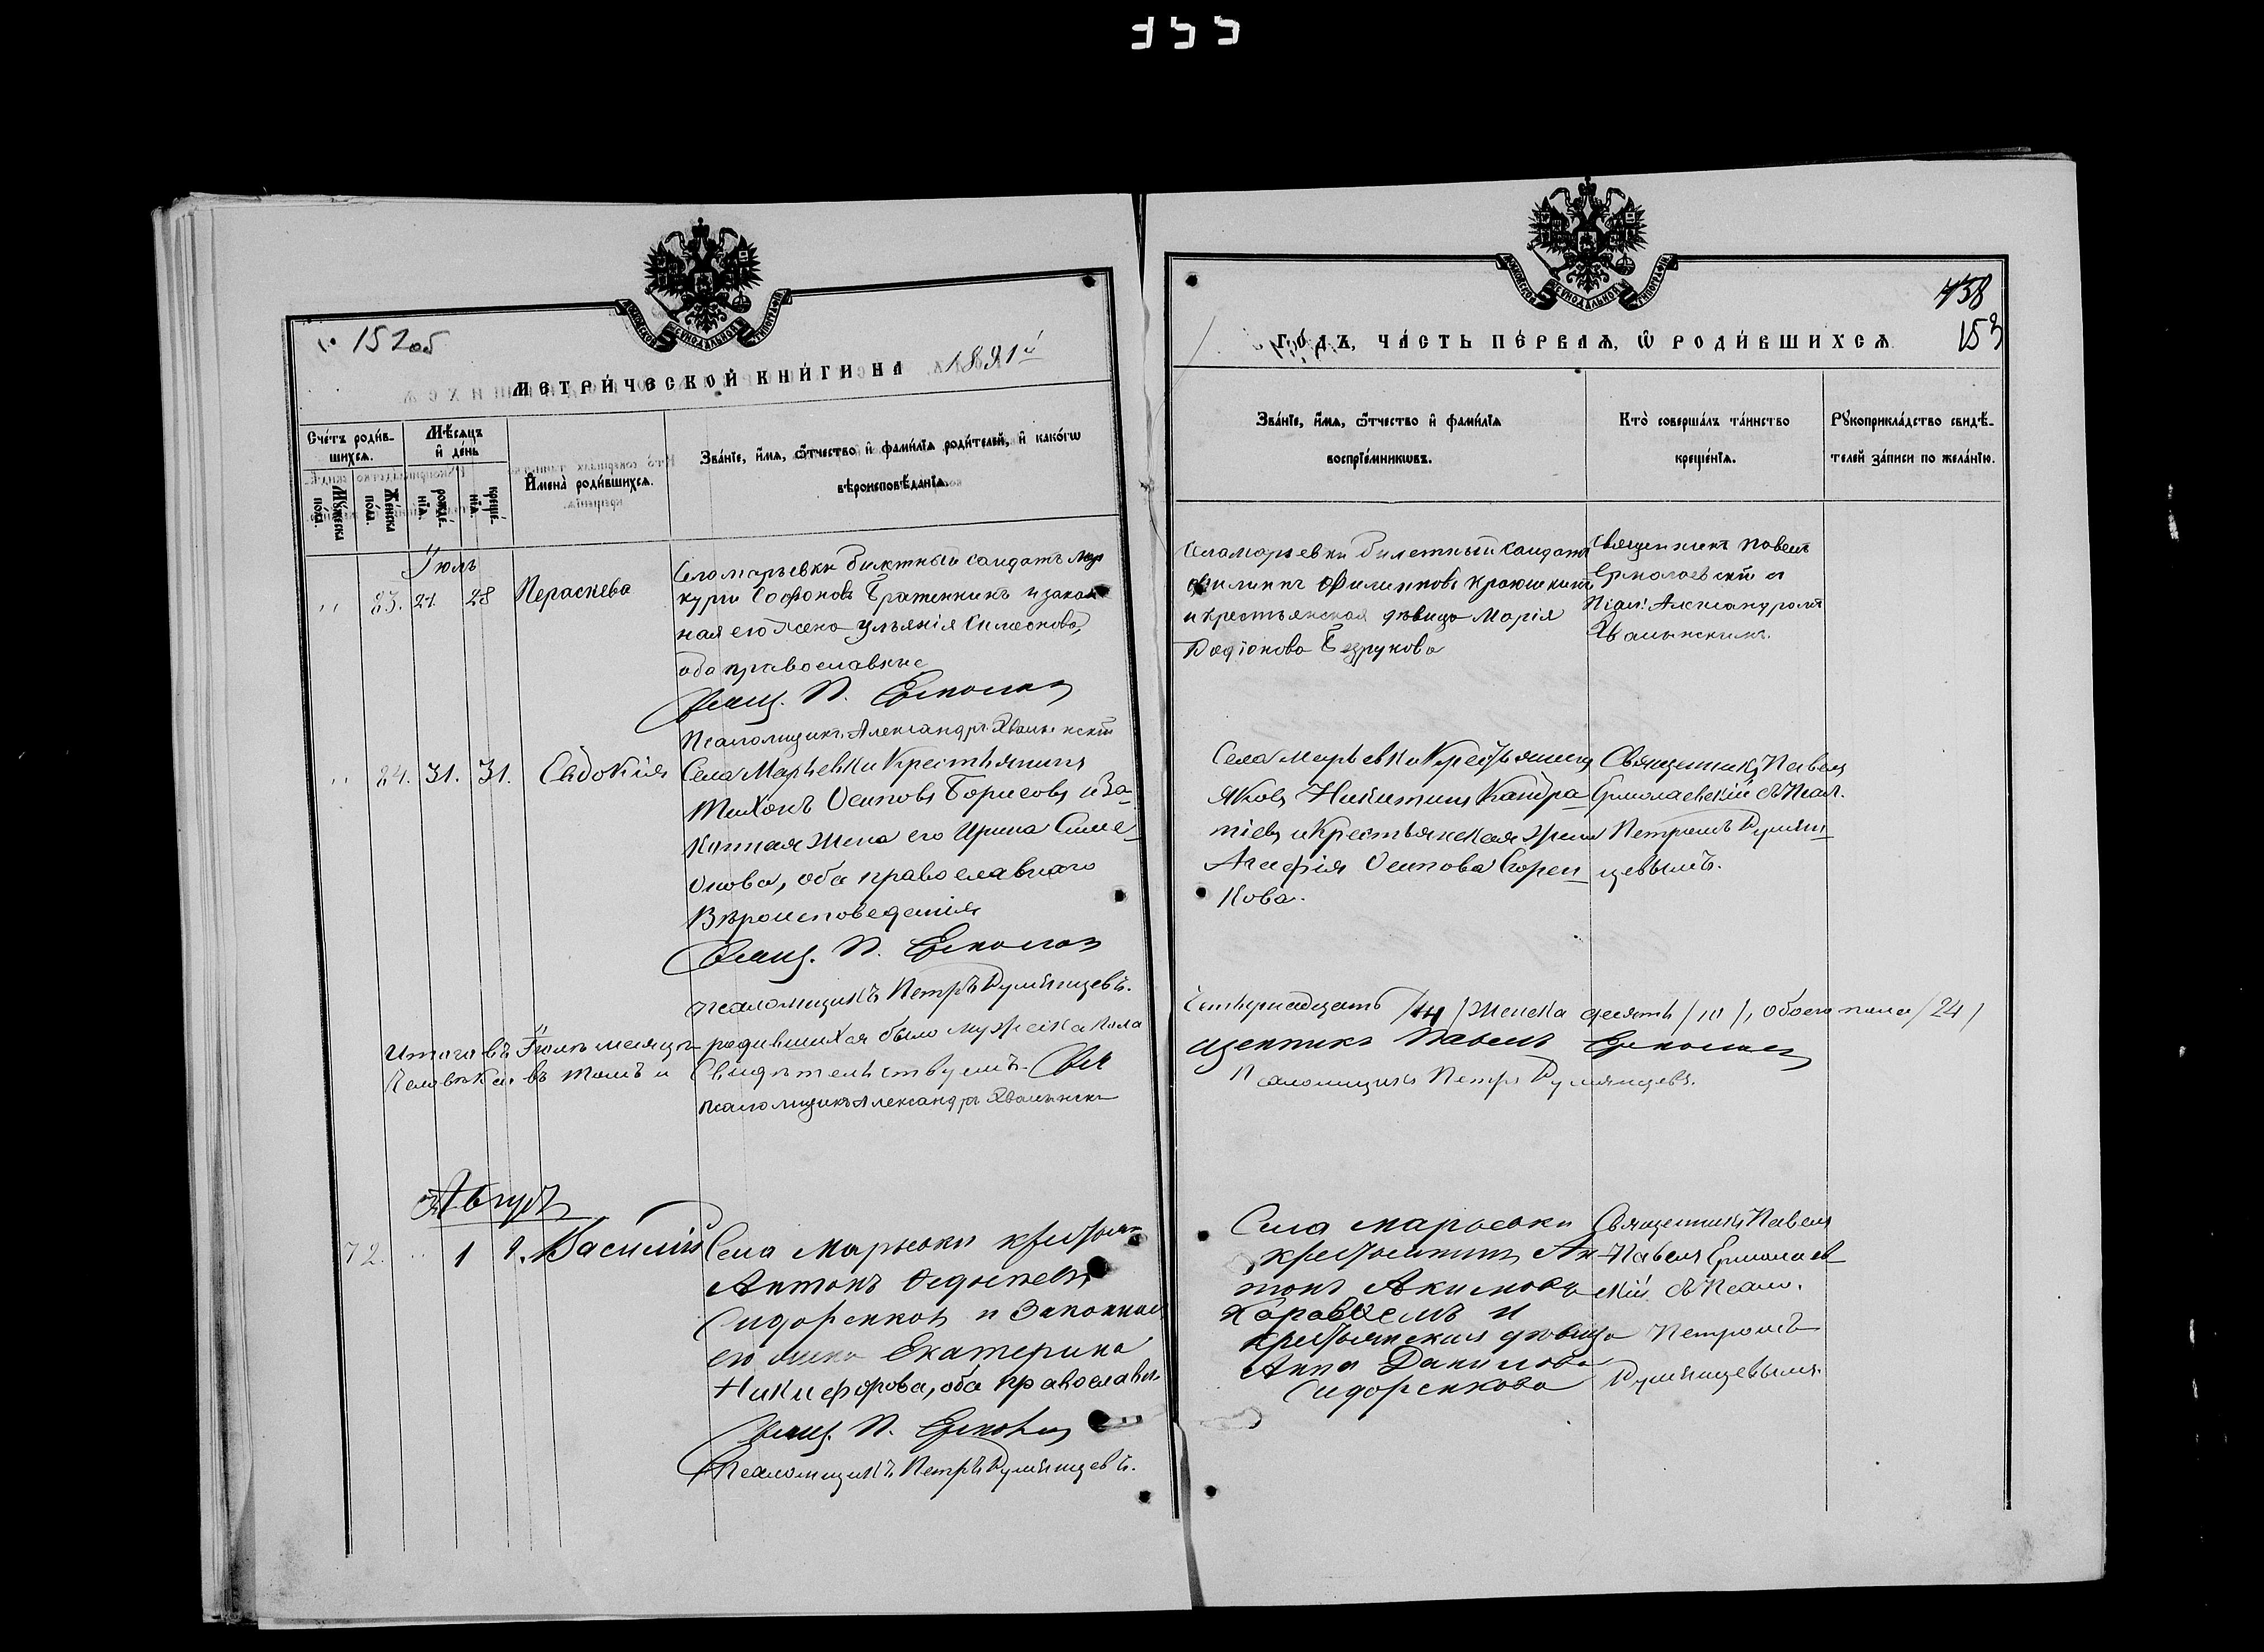 152об
МЕТРИ́ЧЕСКОЙ КНИ́ГИ НА 1891й
Сче́тъ роди́в-
шихсѧ.
Мѣ́сѧцъ
и҆ де́нь
Мꙋ́жеска
по́ла.
Же́нска
по́ла.
рожде́-
нїѧ.
креще́-
нїѧ.
И҆мена̀ роди́вшихсѧ.
Зва́нїе, и҆́мѧ, ѻ҆́тчество и҆ фами́лїѧ роди́телей, и҆ како́гѡ
вѣроисповѣ́данїѧ.
Іюль
" 23. 27. 28 Пераскева
Села Марьевки билетный солдатъ Мер
курій Софоновъ Браженникъ и закон
ная его жена Ульянія Симеонова,
оба православные
Свящ. П. Ермолаев
Псаломщикъ Александръ Хвалынскій
" 24. 31. 31. Евдокія
Села Марьевки Крестьянинъ
Тихонъ Осиповъ Борисовъ и За-
конная жена его Ирина Симе-
онова, оба православнаго
Вѣроисповеданія
Свящ. П. Ермолаев
псаломщикъ Петръ Румянцевъ.
Итого въ Іюлѣ месяцѣ родившихся было мужеска пола
Человѣка. въ томъ и Свидѣтельствуемъ. Свя
псаломщикъ Александръ Хвалынски
Августъ
72. " 1 2. Василій
Села Марьевки крестьян.
Антонъ
Сидоренковъ и Законная
его жена Екатерина
Никифорова, оба православн.
Свящ. П. Ермолаев
Псаломщикъ Петръ Румянцевъ.
438
153
ГО́ДЪ, ЧА́СТЬ ПЕ́РВАѦ, Ѡ҆ РОДИ́ВШИХСѦ
Зва́нїе, и҆́мѧ, ѻ҆́тчество и҆ фами́лїѧ
воспрїе́мникѡвъ.
Кто̀ соверша́лъ та́инство
креще́нїѧ.
Рꙋкоприкла́дство свидѣ́-
телей за́писи по жела́нїю.
Села Марьевки билетный солдатъ
Филиппъ Филипповъ
и крестьянская дѣвица Марія
Родіонова Безрукова
Священникъ Павелъ
Ермолаевскій съ
Псал. Александромъ
Хвалынскимъ.
Села Марьевки Крестьянинъ
Яковъ Никитинъ Кондра-
тіевъ и Крестьянская жена
Агафія Осипова Горен-
кова.
Священникъ Павелъ
Ермолаевскій съ Псал.
Петромъ Румян-
цевымъ.
Четырнадцать /14/ женска десять /10/, обоего пола /24/
щенникъ Павелъ Ермолаев
Псаломщикъ Петръ Румянцевъ.
Села Марьевки
крестьянинъ Ан-
тонъ Акимовъ
и
крестьянская дѣвица
Анна Данилова
Сидоренкова
Священникъ Павелъ
Павелъ Ермолаев
скій съ Псало.
Петромъ
Румянцевымъ.